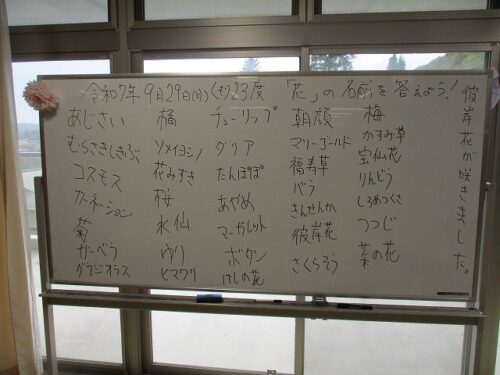 令和7年 9月29日(月)くもり23度 「花」の名前を答えよう!
あじさい
むらさきしきぶ
コスモス
カーネーション
菊
ガーベラ
グラジオラス
橘
ソメイヨシノ
花みずき
桜
水仙
ゆり
ヒマワリ
チューリップ
ダリア
たんぽぽ
あやめ
マーガレット
ボタン
けしの花
朝顔
マリーゴールド
福寿草
バラ
きんせんか
彼岸花
さくらそう
梅
かすみ草
宝仙花
りんどう
しろつめくさ
つつじ
菜の花
彼岸花が咲きました。